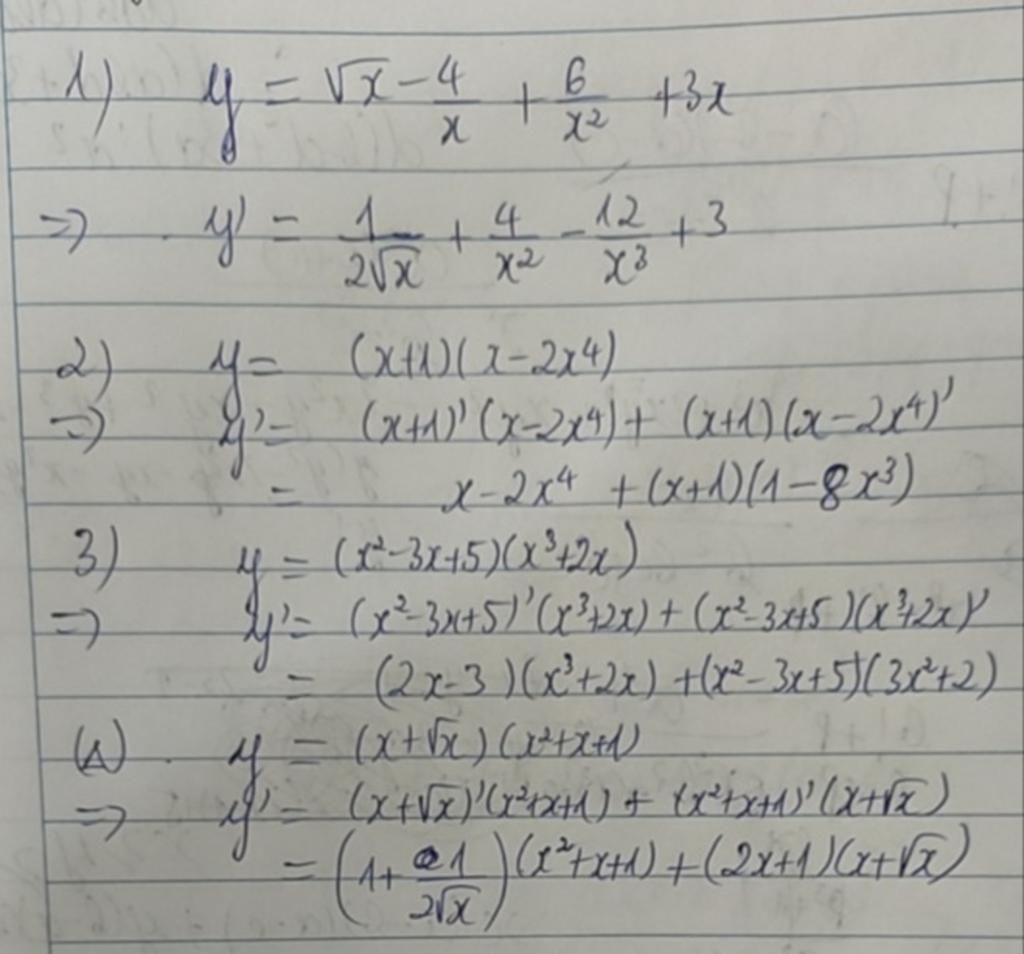 1) y = √x - 4/x + 6/x² + 3x
=> y' = 1/(2√x) + 4/x² - 12/x³ + 3
2) y = (x+1)(x-2x⁴)
=> y' = (x+1)'(x-2x⁴) + (x+1)(x-2x⁴)'
= x-2x⁴ + (x+1)(1-8x³)
3) y = (x²-3x+5)(x³+2x)
=> y' = (x²-3x+5)'(x³+2x) + (x²-3x+5)(x³+2x)'
= (2x-3)(x³+2x) + (x²-3x+5)(3x²+2)
y = (x+√x)(x²+x+1)
=> y' = (x+√x)'(x²+x+1) + (x²+x+1)'(x+√x)
= (1 + 1/(2√x))(x²+x+1) + (2x+1)(x+√x)